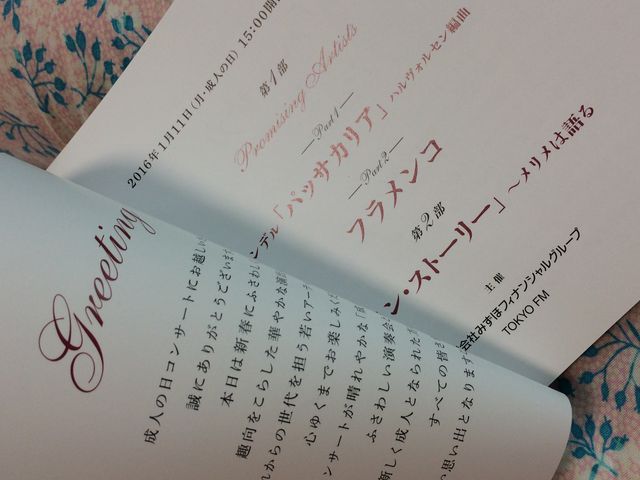 2016年1月11日(月・成人の日) 15:00開
第1部
Promising Artists
—Part 1—
ンデル「パッサカリア」ハルヴォルセン編曲
—Part 2—
フラメンコ
第2部
ン・ストーリー」～メリメは語る
主催
会社みずほフィナンシャルグループ
TOKYO FM
Greeting
成人の日コンサートにお越し
誠にありがとうございま
本日は新春にふさわし
趣向をこらした華やかな演
からの世代を担う若いアー
心ゆくまでお楽しみくだ
ンサートが晴れやかな「
ふさわしい演奏会
新しく成人となられた
すべての皆さ
い思い出となります